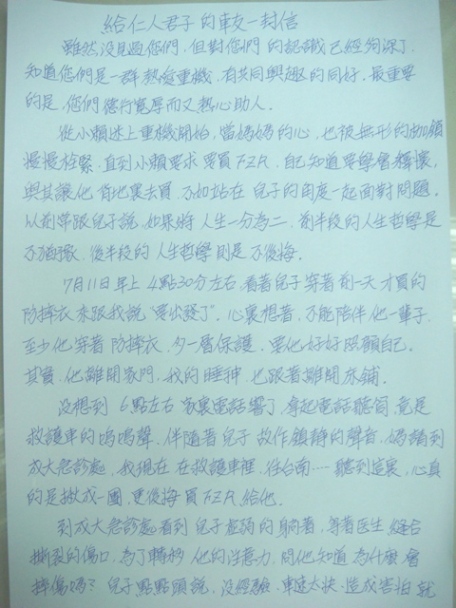 給仁人君子的較一封信
雖然沒見過您們,但對您們的認識已經夠深了,
知道您們是一群熱愛重機,有共同興趣的同好,最重要
的是,您們德行寬厚而又熱心助人.
從小賴迷上重機開始,當媽媽的心,也被無形的枷鎖
慢慢栓緊,直到小賴要求要買FZR,自己知道要學會釋懷,
與其讓他背地裏去買,不如站在兒子的角度一起面對問題,
以前常跟兒子說,如果將人生一分為二,前半段的人生哲學是
不猶豫,後半段的人生哲學則是不後悔.
7月11日早上4點30分左右,看著兒子穿著前一天才買的
防摔衣來跟我說"要出發了".心裏想著,不能陪伴他一輩子,
至少他穿著防摔衣,多一層保護,要他好好照顧自己.
其實,他離開家門,我的睡神,也跟著離開床鋪.
沒想到6點左右家裏電話響了,拿起電話聽筒,竟是
救護車的嗚嗚聲,伴隨著兒子故作鎮靜的聲音,媽請到
成大急診處,我現在在救護車裡,往台南……聽到這裏,心真
的是揪成一團,更後悔買FZR給他.
到成大急診處看到兒子虛弱的躺著,等著医生縫合
撕裂的傷口,為了轉移他的注意力,問他知道為什麼會
摔傷嗎?兒子點點頭說,沒經驗,車速太快,造成害怕就